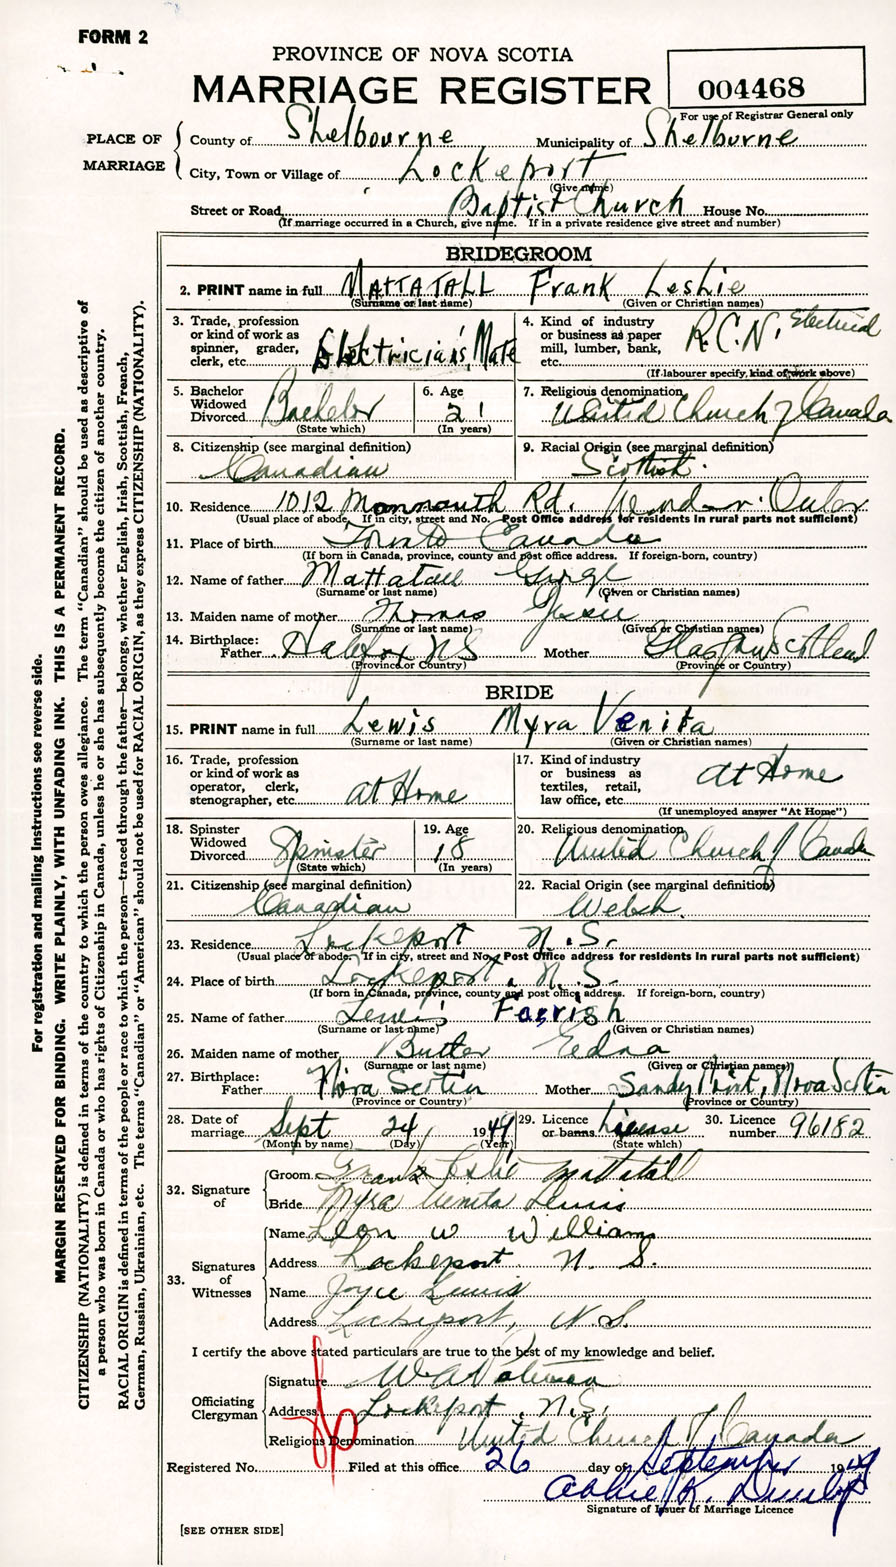 FORM 2
PROVINCE OF NOVA SCOTIA
MARRIAGE REGISTER
004468
For use of Registrar General only
PLACE OF MARRIAGE
County of Shelbourne Municipality of Shelburne
City, Town or Village of Lockeport
(Give name)
Street or Road Baptist Church House No.
(If marriage occurred in a Church, give name. If in a private residence give street and number)
BRIDEGROOM
2. PRINT name in full MATTATALL Frank Leslie
(Surname or last name) (Given or Christian names)
3. Trade, profession or kind of work as spinner, grader, clerk, etc. Electrician's Mate
4. Kind of industry or business as paper mill, lumber, bank, etc. R.C.N. Electrical
(If labourer specify, kind of work above)
5. Bachelor Widowed Divorced Bachelor
(State which)
6. Age 21
(In years)
7. Religious denomination United Church of Canada
8. Citizenship (see marginal definition) Canadian
9. Racial Origin (see marginal definition) Scottish.
10. Residence 1012 Monmouth Rd.
(Usual place of abode. If in city, street and No. Post Office address for residents in rural parts not sufficient)
11. Place of birth Toronto Canada
(If born in Canada, province, county and post office address. If foreign-born, country)
12. Name of father Mattatall George
(Surname or last name) (Given or Christian names)
13. Maiden name of mother Thomas Jessie
(Surname or last name) (Given or Christian names)
14. Birthplace: Father Halifax NS Mother Glasgow Scotland
(Province or Country) (Province or Country)
BRIDE
15. PRINT name in full Lewis Myra Venita
(Surname or last name) (Given or Christian names)
16. Trade, profession or kind of work as operator, clerk, stenographer, etc. at Home
17. Kind of industry or business as textiles, retail, law office, etc. at Home
(If unemployed answer "At Home")
18. Spinster Widowed Divorced Spinster
(State which)
19. Age 18
(In years)
20. Religious denomination United Church of Canada
21. Citizenship (see marginal definition) Canadian
22. Racial Origin (see marginal definition) Welsh.
23. Residence Lockeport N.S.
(Usual place of abode. If in city, street and No. Post Office address for residents in rural parts not sufficient)
24. Place of birth Lockeport, N.S.
(If born in Canada, province, county and post office address. If foreign-born, country)
25. Name of father Lewis Farrish
(Surname or last name) (Given or Christian names)
26. Maiden name of mother Butler Edna
(Surname or last name) (Given or Christian names)
27. Birthplace: Father Nova Scotia Mother Sandy Point, Nova Scotia
(Province or Country) (Province or Country)
28. Date of marriage Sept 24 1949
(Month by name) (Day) (Year)
29. Licence or banns License
(State which)
30. Licence number 96182
32. Signature of
Groom Frank Leslie Mattatall
Bride Myra Venita Lewis
33. Signatures of Witnesses
Name Leon W Williams
Address Lockeport N. S.
Name Joyce Lewis
Address Lockeport, N.S.
I certify the above stated particulars are true to the best of my knowledge and belief.
Officiating Clergyman
Signature W A
Address Lockeport, N.S.
Religious Denomination United Church of Canada
Registered No. Filed at this office 26 day of September 1949
K. Dunlop
Signature of Issuer of Marriage Licence
[SEE OTHER SIDE]
For registration and mailing instructions see reverse side.
MARGIN RESERVED FOR BINDING. WRITE PLAINLY, WITH UNFADING INK. THIS IS A PERMANENT RECORD.
CITIZENSHIP (NATIONALITY) is defined in terms of the country to which the person owes allegiance. The term "Canadian" should be used as descriptive of
a person who was born in Canada or who has rights of Citizenship in Canada, unless he or she has subsequently become the citizen of another country.
RACIAL ORIGIN is defined in terms of the people or race to which the person—traced through the father—belongs, whether English, Irish, Scottish, French,
German, Russian, Ukrainian, etc. The terms "Canadian" or "American" should not be used for RACIAL ORIGIN, as they express CITIZENSHIP (NATIONALITY).